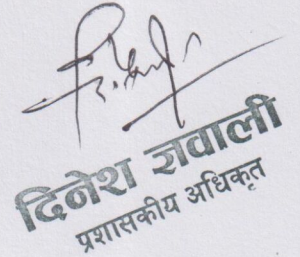 दिनेश ज्ञवाली
प्रशासकीय अधिकृत